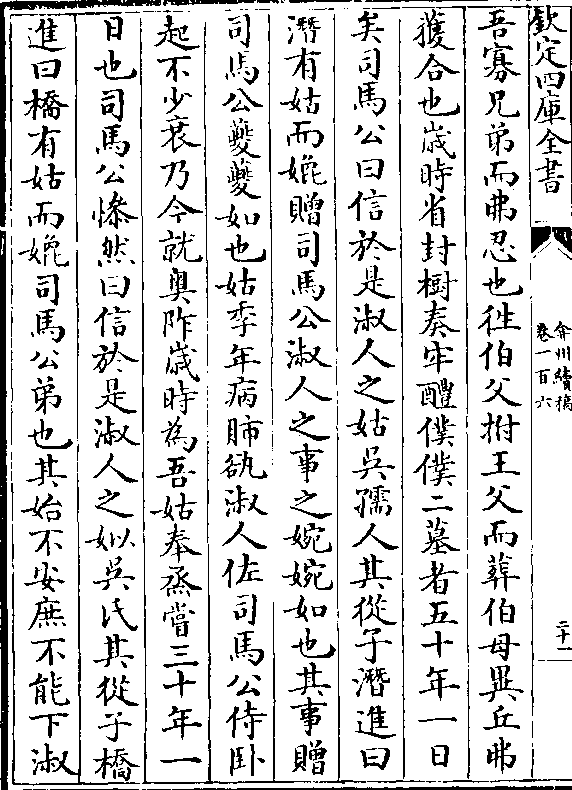 欽定四庫全書
弇州續稿
卷一百六
二十一
吾寡兄弟而弗忍也徃伯父拊王父而葬伯母異丘弗
獲合也歳時省封樹奏牢醴僕僕二墓者五十年一日
矣司馬公曰信於是淑人之姑吳孺人其從子潛進曰
潛有姑而娩贈司馬公淑人之事之婉婉如也其事贈
司馬公夔夔如也姑季年病肺欬淑人佐司馬公侍卧
起不少衰乃今就輿阼歳時為吾姑奉烝嘗三十年一
日也司馬公惨然曰信於是淑人之姒吳氏其從子橋
進曰橋有姑而娩司馬公弟也其始不安廡不能下淑